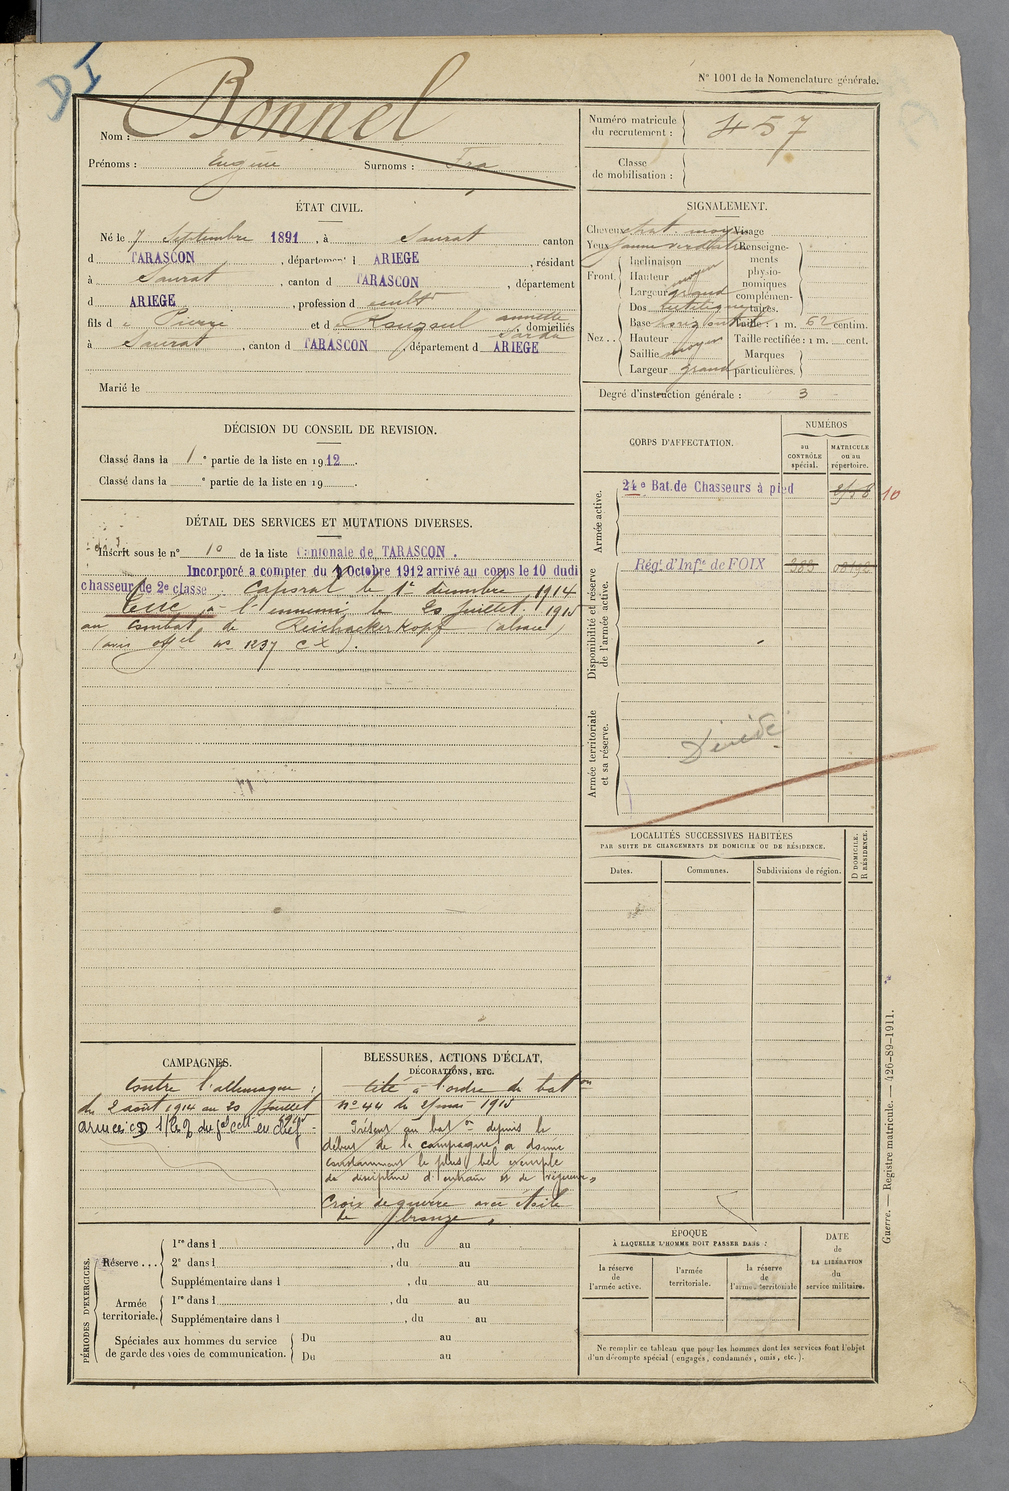 DI
N° 1001 de la Nomenclature générale.
Nom : Bonnel
Prénoms : Eugène Surnoms : Fra
Numéro matricule du recrutement : 457
Classe de mobilisation :
ÉTAT CIVIL.
Né le 7 Septembre 1891, à Saurat canton
d TARASCON, département d ARIEGE, résidant
à Saurat, canton d TARASCON, département
d ARIEGE, profession d cultr
fils d e Pierre et d e Rouzoul annette domiciliés
à Saurat, canton d TARASCON, département d ARIEGE
Marié le
SIGNALEMENT.
Cheveux chat. moy Visage
Yeux jaune verdâtre Renseignements physionomiques complémentaires.
Front. Inclinaison
Hauteur moyen
Largeur grand
Nez.. Dos
Base horizontal Taille : 1 m. 62 centim.
Hauteur Taille rectifiée : 1 m. cent.
Saillie moyen Marques particulières.
Largeur grand
Degré d'instruction générale : 3
DÉCISION DU CONSEIL DE REVISION.
Classé dans la 1e partie de la liste en 1912.
Classé dans la e partie de la liste en 19 .
CORPS D'AFFECTATION.
NUMÉROS
au CONTRÔLE spécial.
MATRICULE ou au répertoire.
Armée active.
24e Bat. de Chasseurs à pied 10
Disponibilité et réserve de l'armée active.
Régt d'Infie de FOIX
Armée territoriale et sa réserve.
Décédé
DÉTAIL DES SERVICES ET MUTATIONS DIVERSES.
Inscrit sous le n° 10 de la liste Cantonale de TARASCON.
Incorporé a compter du Octobre 1912 arrivé au corps le 10 dudi
chasseur de 2e classe. Caporal le 1er décembre 1914
Tué à l'ennemi le 20 Juillet 1915
au combat de Reichackerkopf (alsace)
(avis offel no 1237 C X).
LOCALITÉS SUCCESSIVES HABITÉES
PAR SUITE DE CHANGEMENTS DE DOMICILE OU DE RÉSIDENCE.
Dates. Communes. Subdivisions de région. D DOMICILE. R RÉSIDENCE.
CAMPAGNES.
Contre l'allemagne :
du 2 août 1914 au 20 Juillet
1915
BLESSURES, ACTIONS D'ÉCLAT,
DÉCORATIONS, ETC.
Cité à l'ordre du baton
n° 44 du 2 mai 1915
Présent au baton depuis le
début de la campagne a donné
constamment le plus bel exemple
de discipline d'entrain et de
Croix de guerre avec étoile
de bronze.
PÉRIODES D'EXERCICES.
Réserve... 1re dans l , du au
2e dans l , du au
Supplémentaire dans l , du au
Armée territoriale. 1re dans l , du au
Supplémentaire dans l , du au
Spéciales aux hommes du service de garde des voies de communication. Du au
Du au
ÉPOQUE
À LAQUELLE L'HOMME DOIT PASSER DANS :
la réserve de l'armée active.
l'armée territoriale.
la réserve de l'armée territoriale
DATE de LA LIBÉRATION du service militaire.
Ne remplir ce tableau que pour les hommes dont les services font l'objet
d'un décompte spécial (engagés, condamnés, omis, etc.).
Guerre. — Registre matricule. — 426-89-1911.